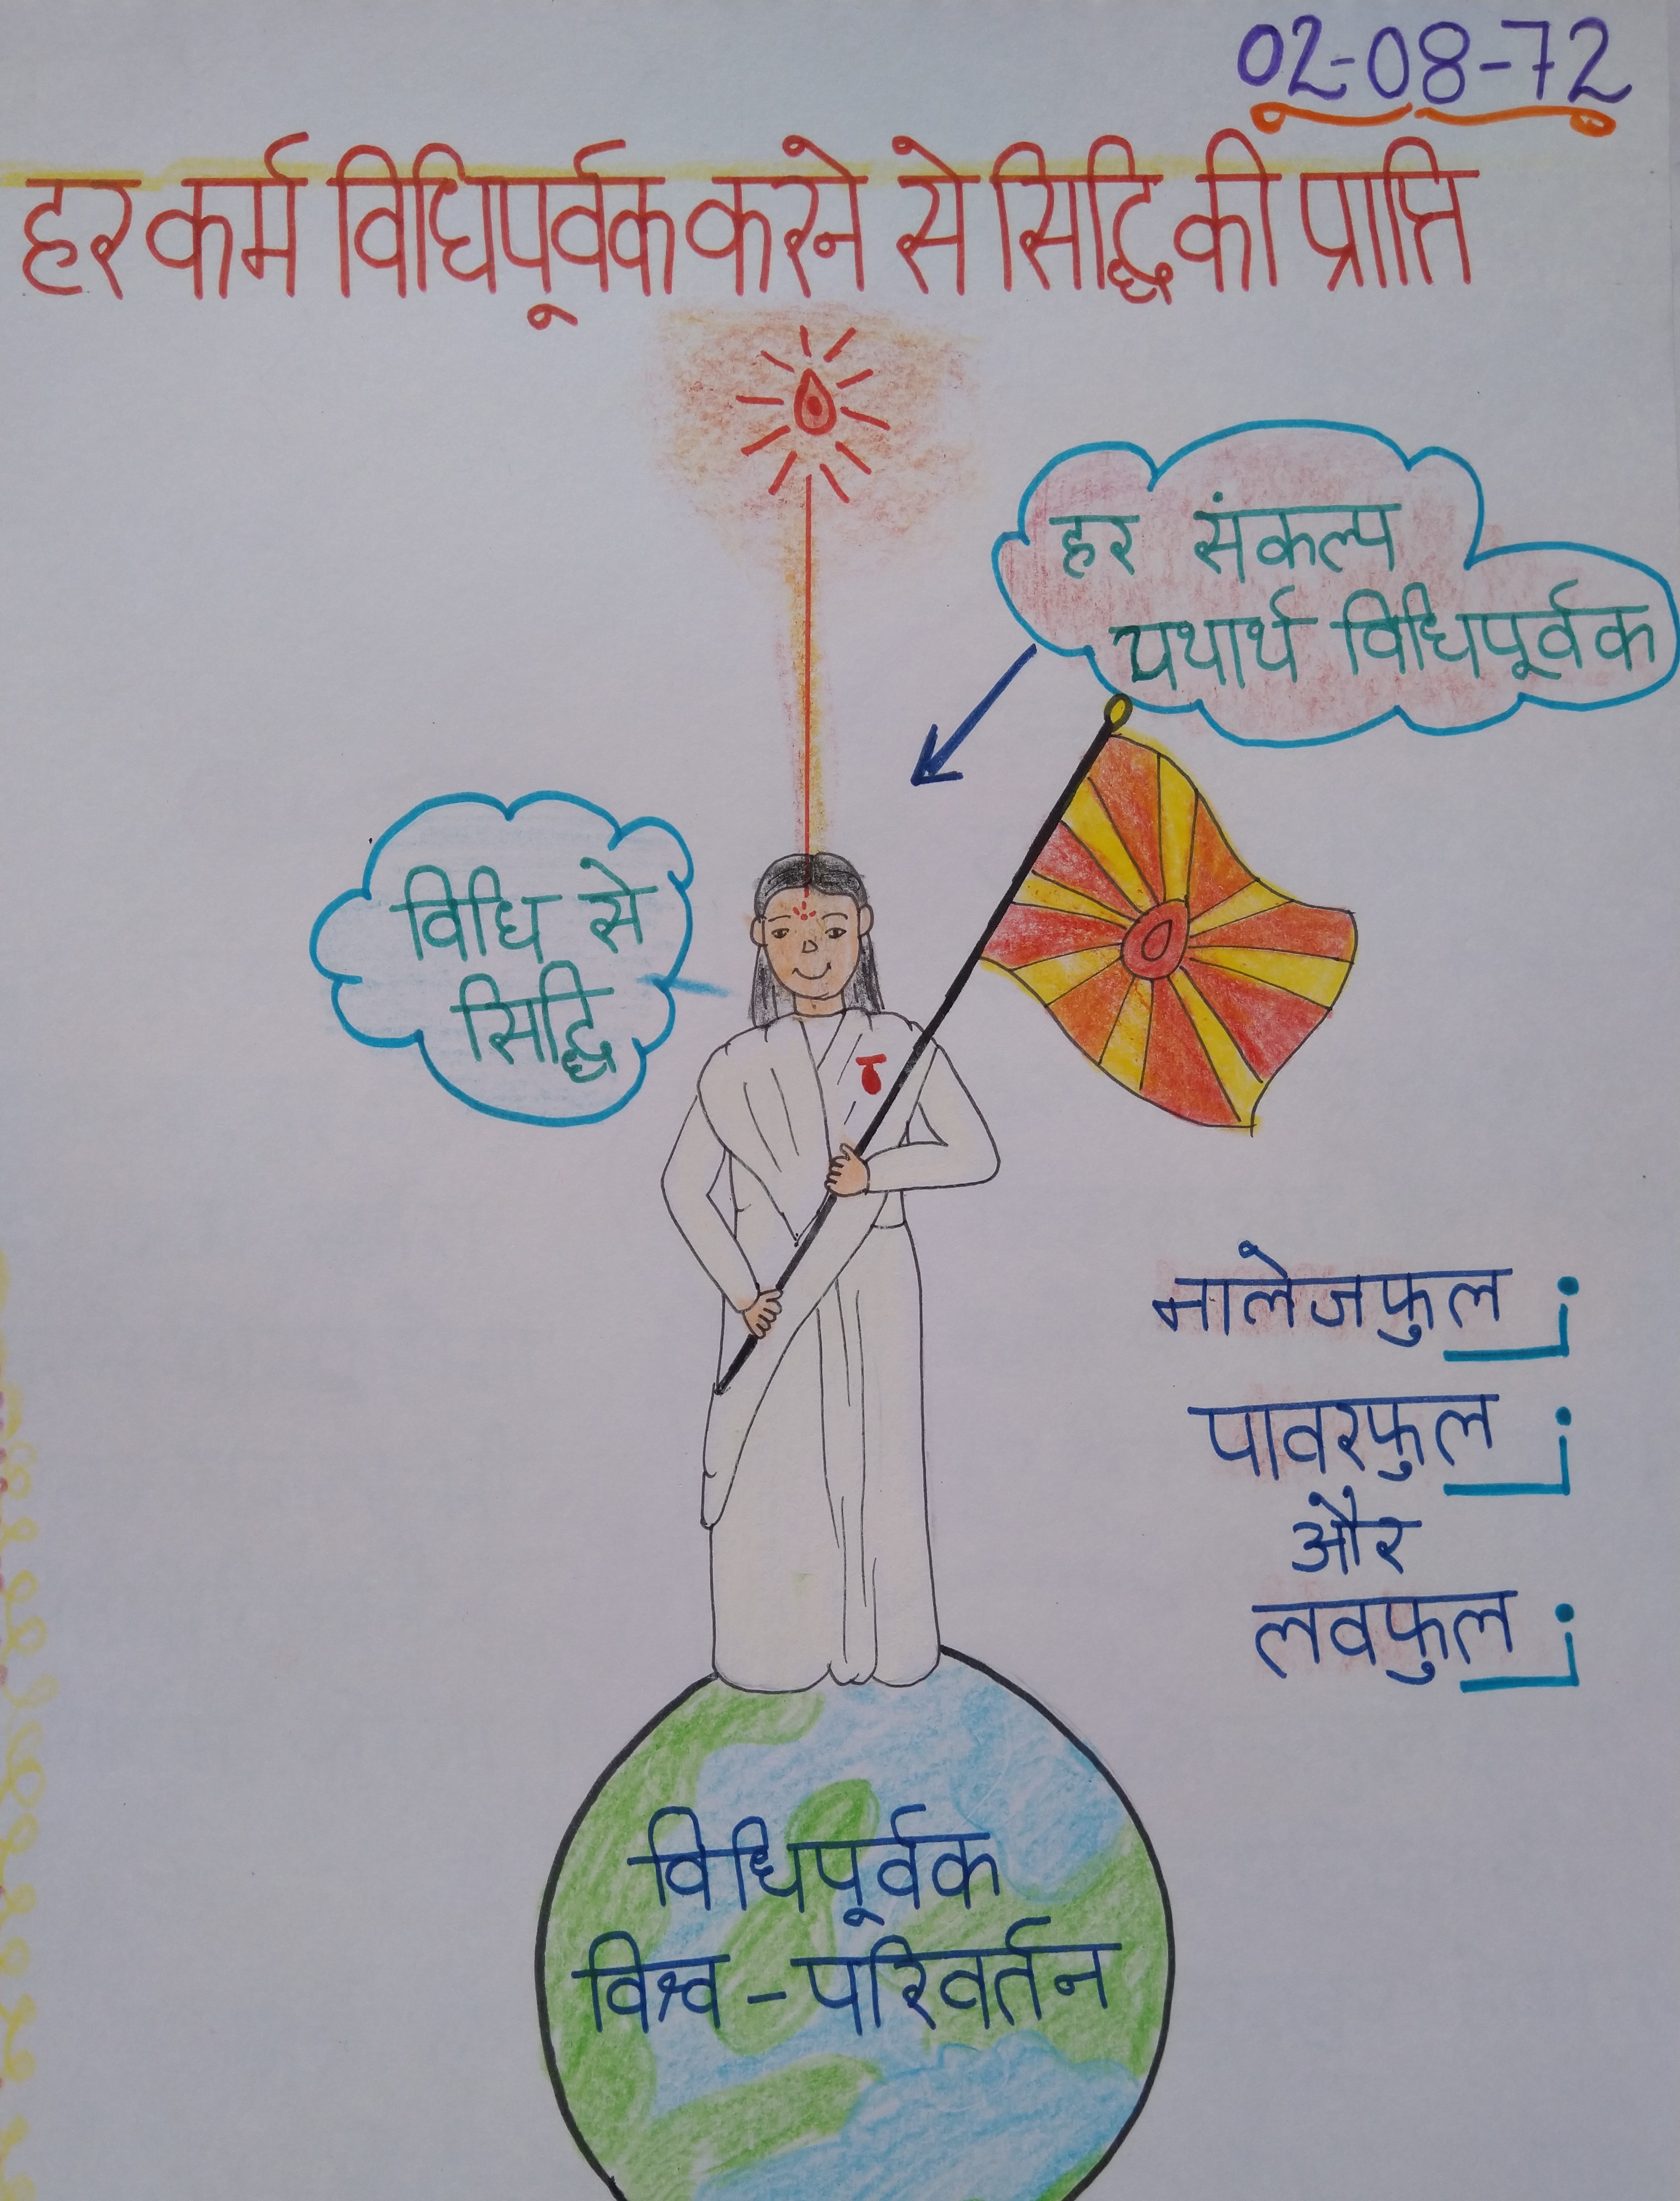 02-08-72
हर कर्म विधिपूर्वक करने से सिद्धि की प्राप्ति
हर संकल्प
यथार्थ विधिपूर्वक
विधि से
सिद्धि
नालेजफुल
पावरफुल
और
लवफुल
विधिपूर्वक
विश्व - परिवर्तन